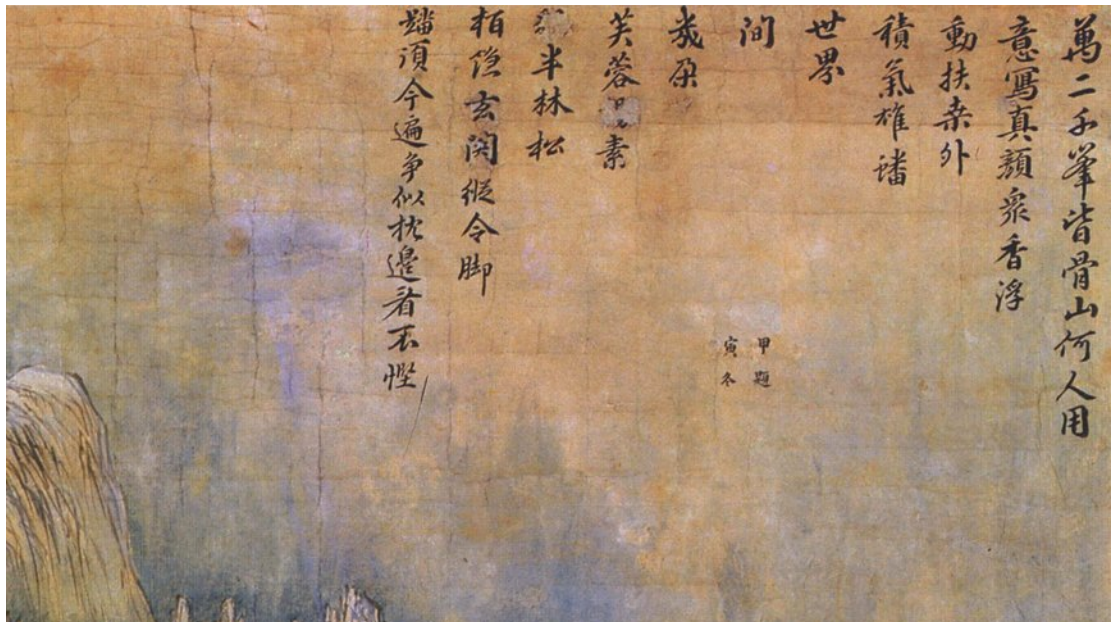 萬二千峯皆骨山何人用
意寫真顔衆香浮
動扶桒外
積氣雄蟠
世界
間
幾朶
芙蓉素
半林松
栢隠玄関縱令脚
踏須今遍争似枕邊看不慳
甲寅
冬題